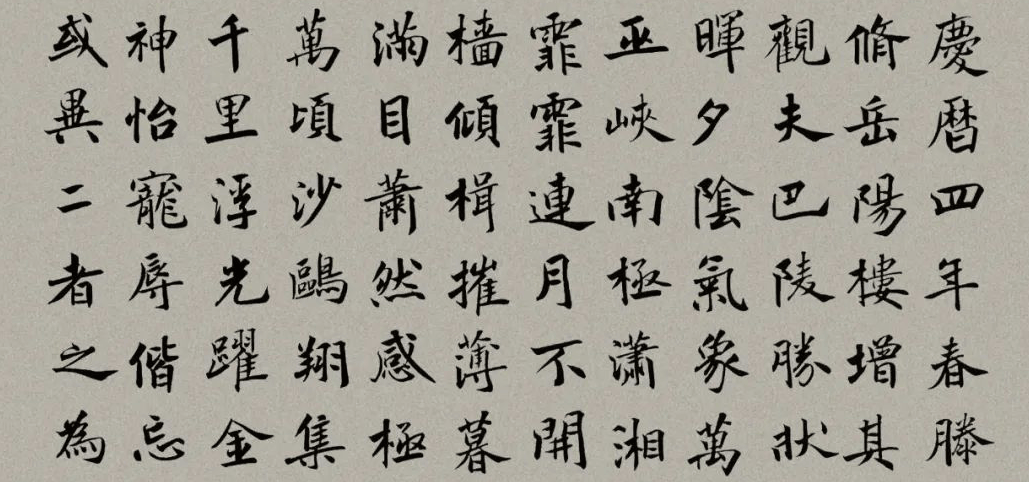 慶曆四年春滕
脩岳陽樓增其
觀夫巴陵勝狀
暉夕陰氣象萬
巫峽南極瀟湘
霏霏連月不開
檣傾楫摧薄暮
滿目蕭然感極
萬頃沙鷗翔集
千里浮光躍金
神怡寵辱偕忘
或異二者之為